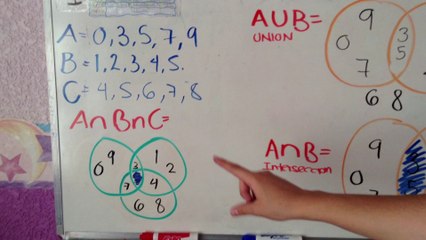 A=0,3,5,7,9
B=1,2,3,4,5.
C=4,5,6,7,8
A∩B∩C=
0 9 1 2
3
7 4
6 8
AUB=
UNION
9
0 3
5
7
6 8
A∩B=
Intersección
9
0
7